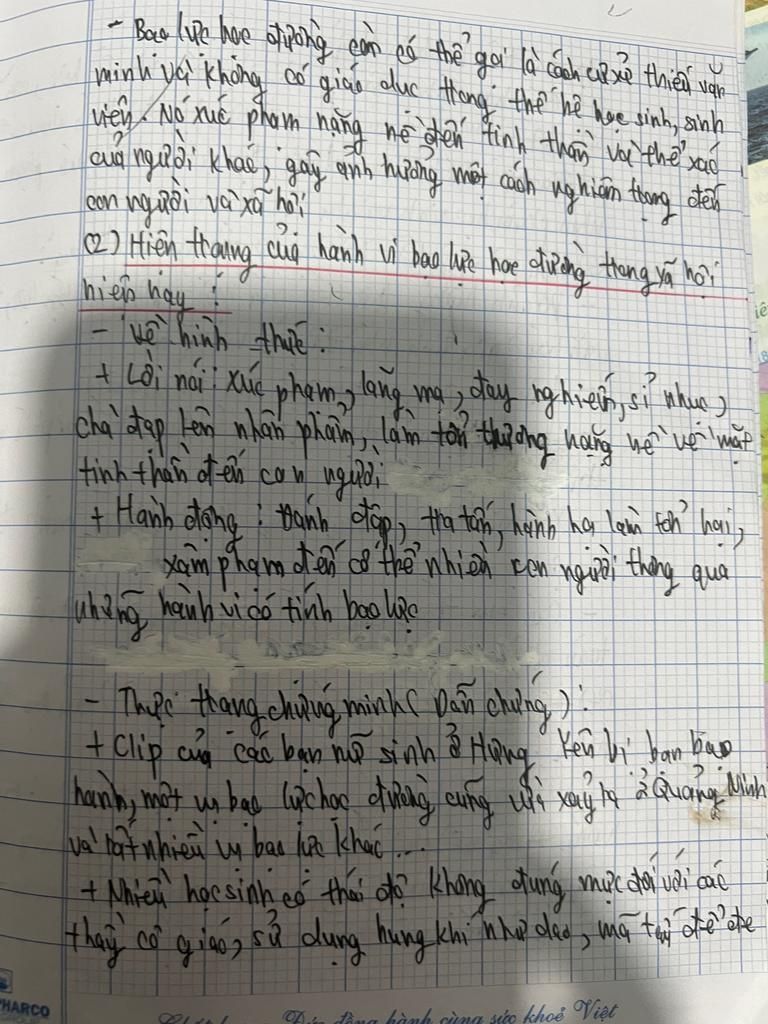 - Bạo lực học đường còn có thể gọi là cách cư xử thiếu văn
minh và không có giáo dục trong thế hệ học sinh, sinh
viên. Nó xúc phạm nặng nề đến tinh thần và thể xác
của người khác, gây ảnh hưởng một cách nghiêm trọng đến
con người và xã hội
(2) Hiện trạng của hành vi bạo lực học đường trong xã hội
hiện nay :
- Về hình thức :
+ Lời nói : xúc phạm, lăng mạ, đay nghiến, sỉ nhục,
chà đạp lên nhân phẩm, làm tổn thương nặng nề về mặt
tinh thần đến con người
+ Hành động : Đánh đập, tra tấn, hành hạ làm tổn hại,
xâm phạm đến cơ thể nhiên con người thông qua
những hành vi có tính bạo lực
- Thực trạng chứng minh (Dẫn chứng) :
+ Clip của các bạn nữ sinh ở Hưng Yên bị bạn bạo
hành, một vụ bạo lực học đường cũng vừa xảy ra ở Quảng Ninh
và rất nhiều vụ bạo lực khác ...
+ Nhiều học sinh có thái độ không đúng mực đối với các
thầy cô giáo, sử dụng hung khí như dao, mã tấu để đe
PHARCO
đồng hành cùng sức khoẻ Việt